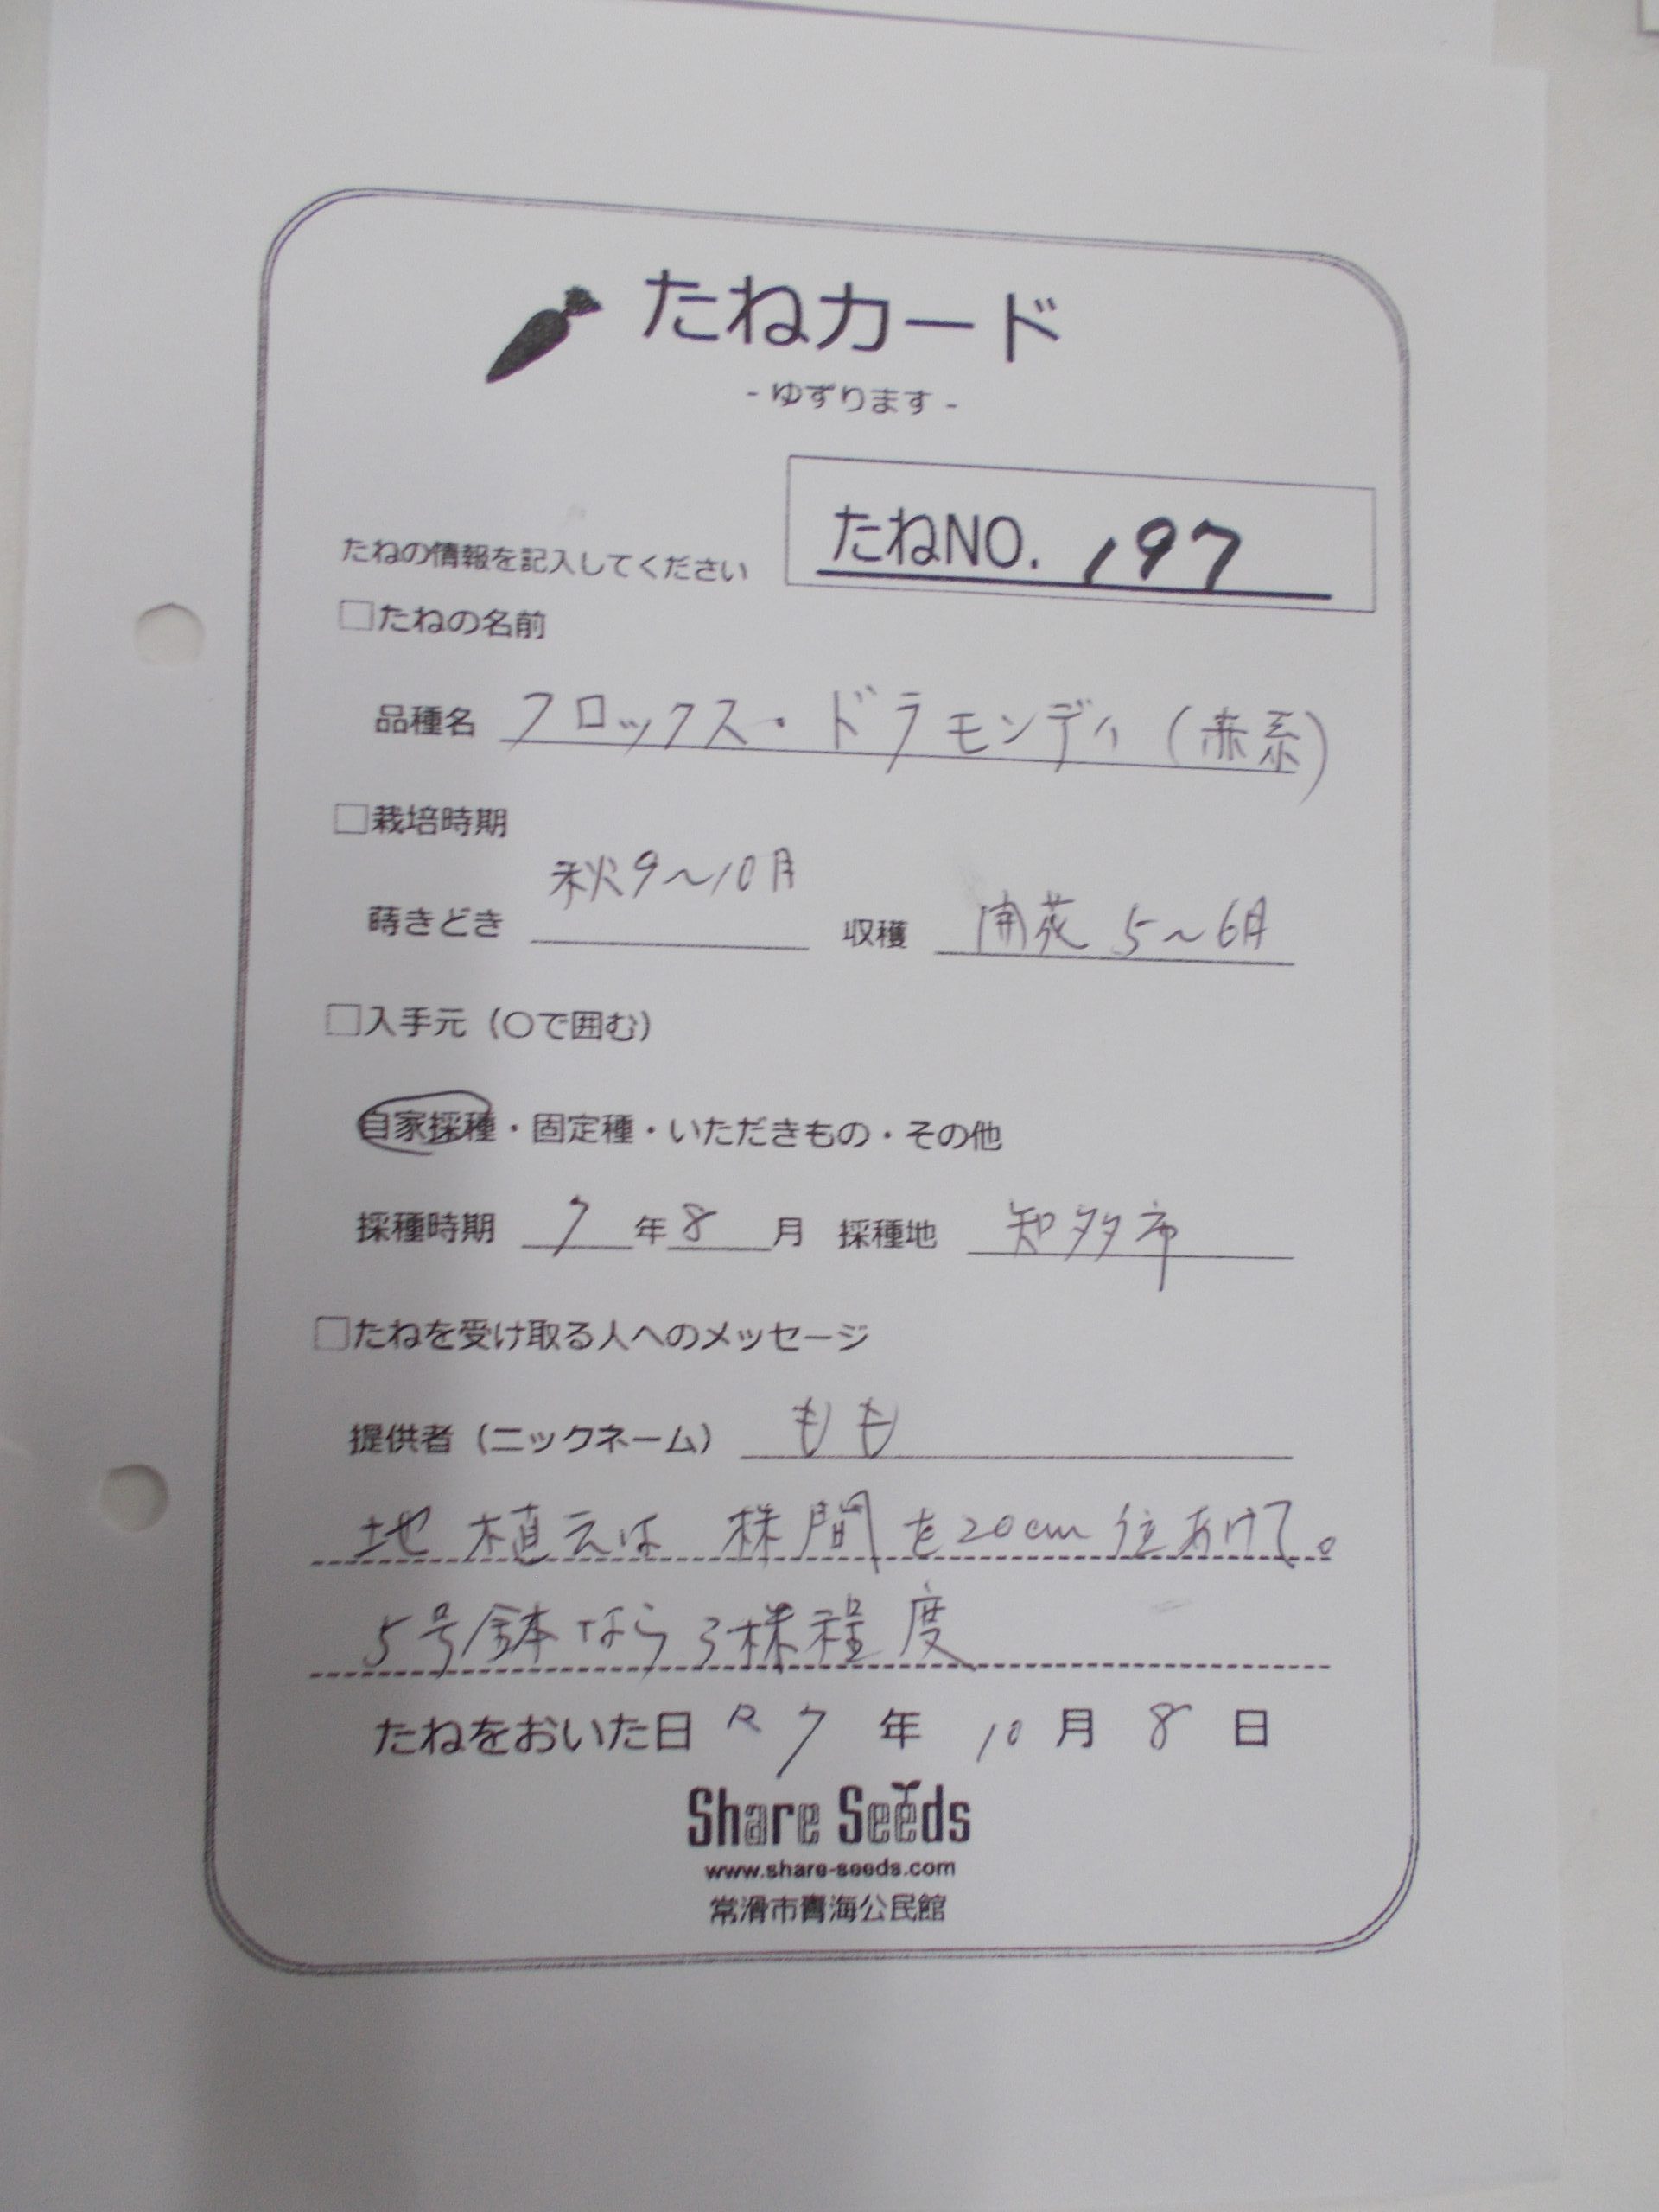 たねカード
- ゆずります -
たねNO. 197
たねの情報を記入してください
□たねの名前
品種名 フロックス・ドラモンディ(赤系)
□栽培時期
蒔きどき 秋9～10月 収穫 開花 5～6月
□入手元（〇で囲む）
自家採種・固定種・いただきもの・その他
採種時期 7 年 8 月 採種地 知多市
□たねを受け取る人へのメッセージ
提供者（ニックネーム） もも
地植えは 株間を20cm位あけて。
5号鉢なら3株程度
たねをおいた日 R7 年 10 月 8 日
Share Seeds
www.share-seeds.com
常滑市青海公民館